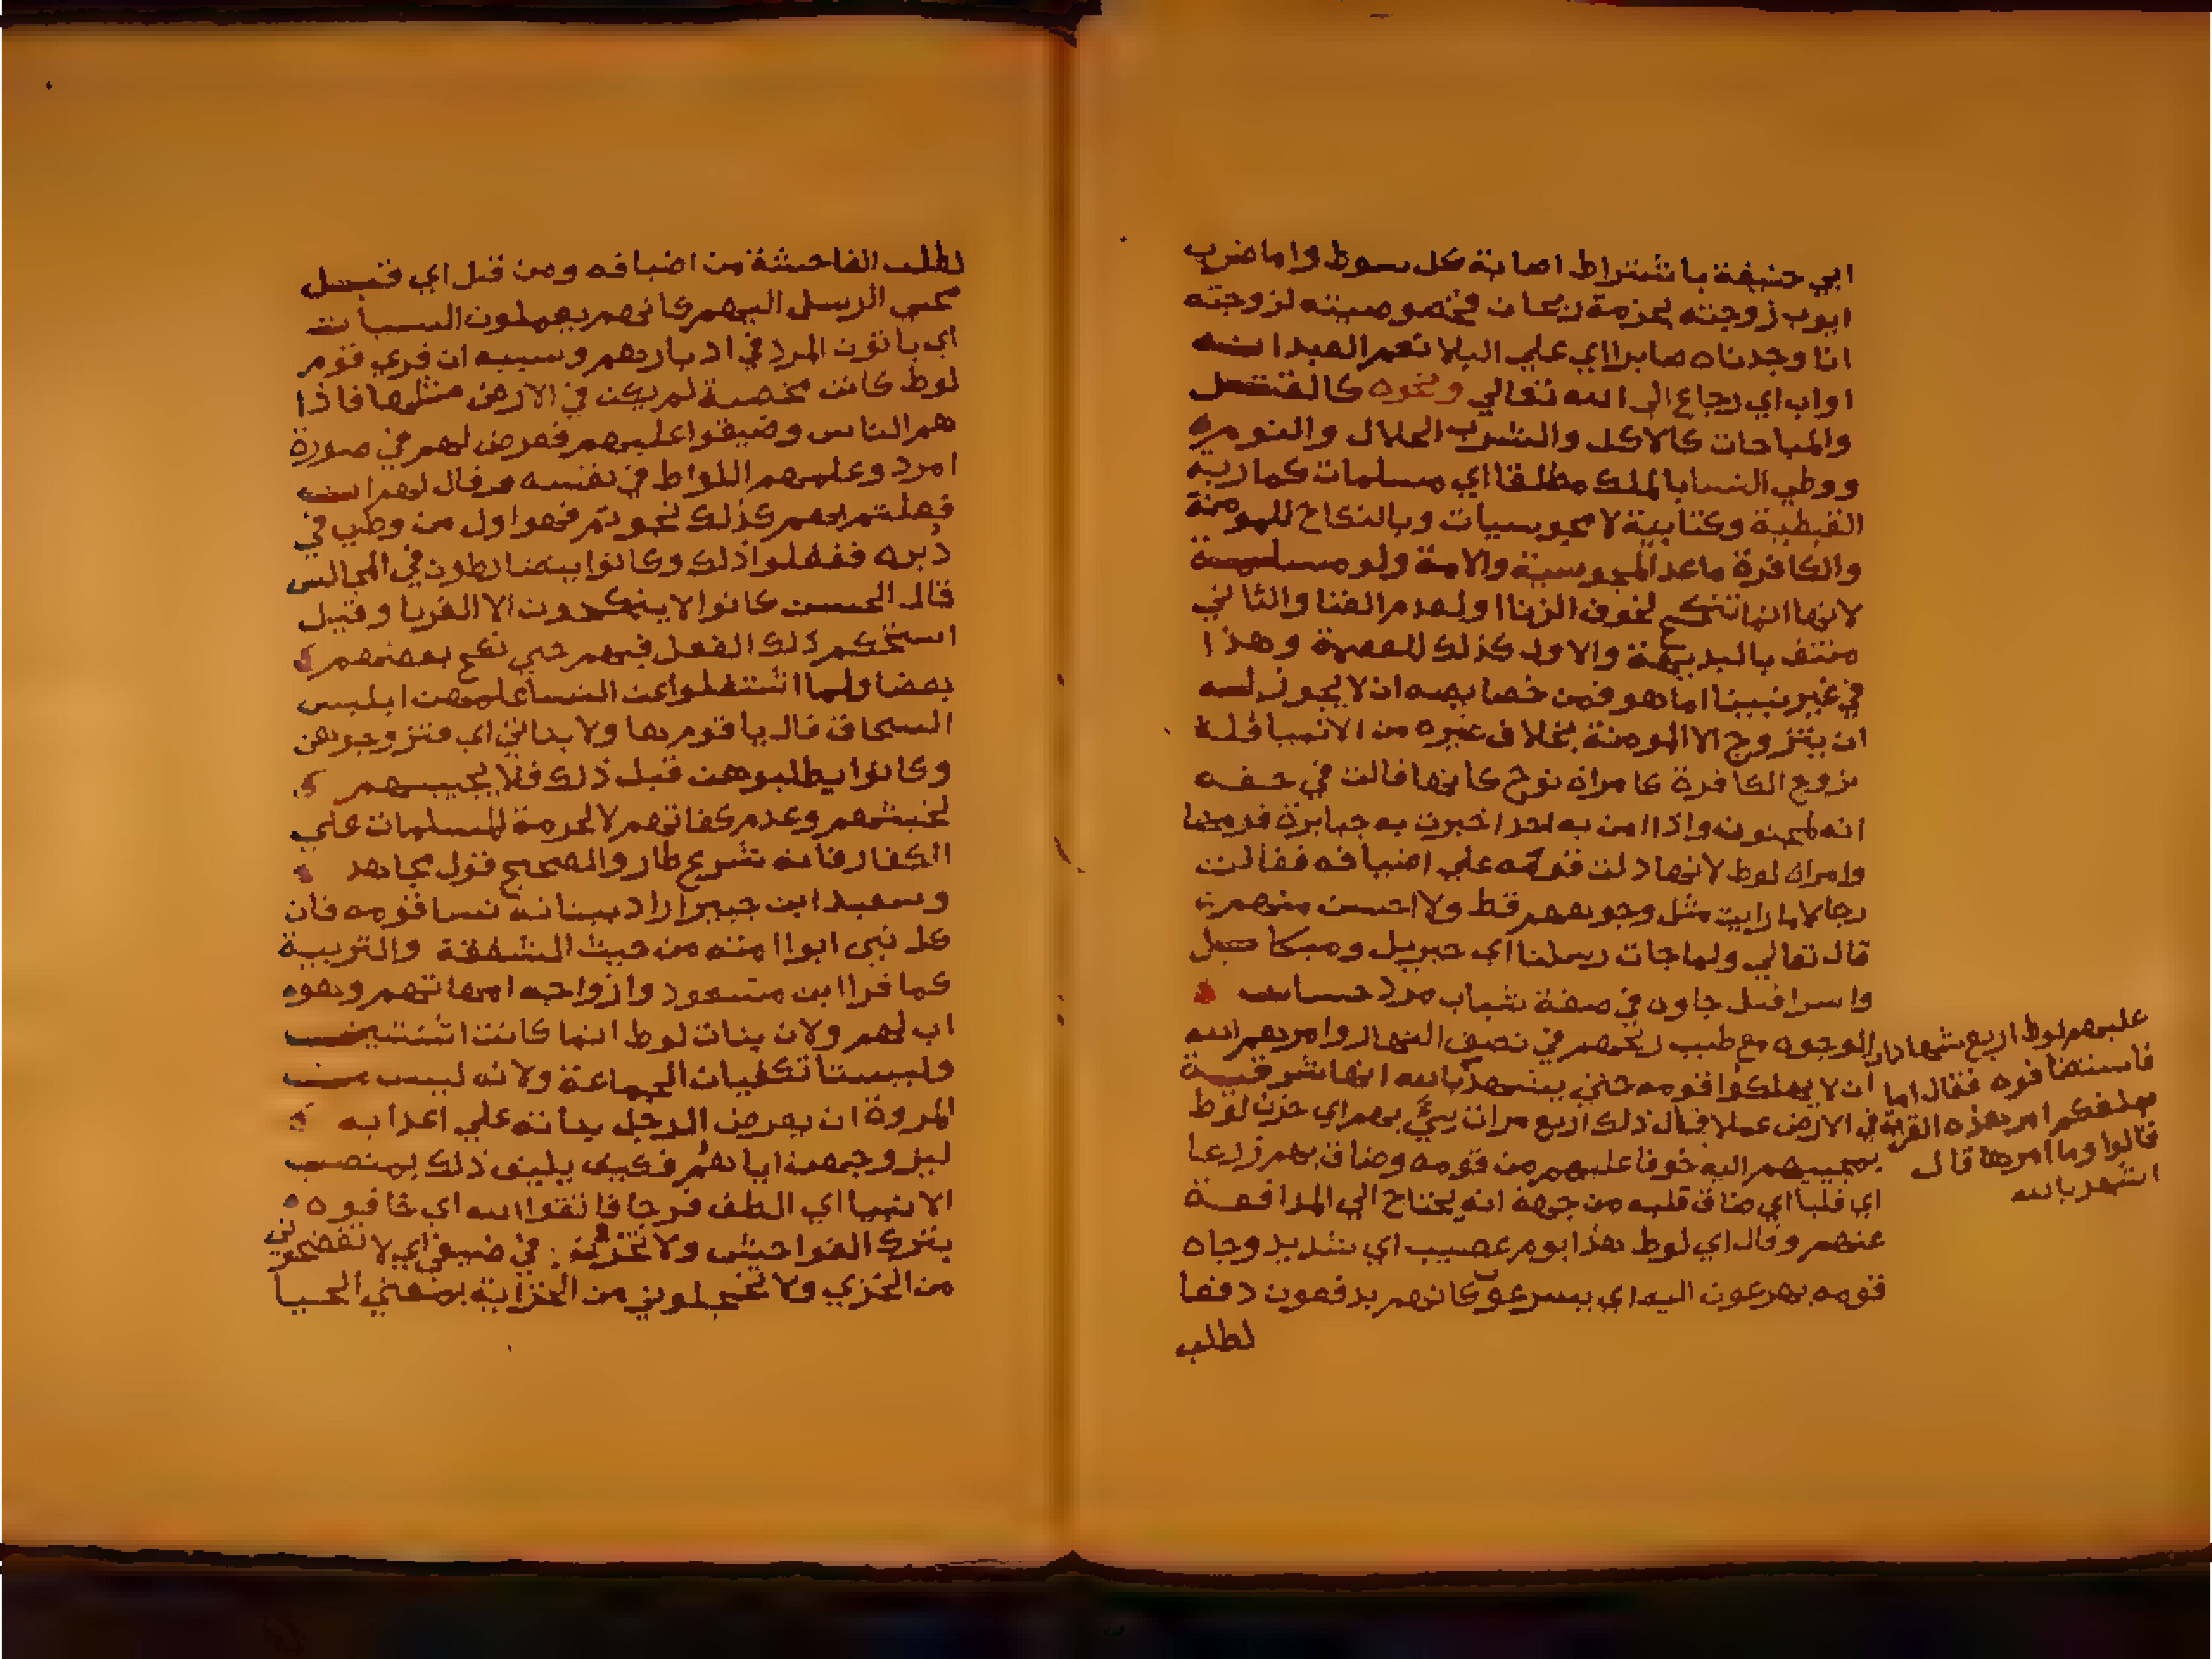 ابي حنيفة باشتراط اصابة كل سوط واما ضرب
ايوب زوجته بحزمة ريحان فخصوصيته لزوجته
انا وجدناه صابرا اي علي البلا نعم العبد انه
اواب اي رجاع الي الله تعالي ونحوه كالقتل
والمباحات كالاكل والشرب الحلال والنوم
ووطي النسا بالملك مطلقا اي مسلمات كمارية
القبطية وكتابية لا مجوسيات وبالنكاح للمومنة
والكافرة ماعدا المجوسية والامة ولو مسلمة
لانها انما تنكح لخوف الزنا او لعدم الغنا والثاني
منتف بالبديهة والاول كذلك للعصمة وهذا
في غير نبينا اما هو فمن خصايصه ان لا يجوز له
ان يتزوج الا المومنة بخلاف غيره من الانبيا فله
تزوج الكافرة كامراة نوح كانها قالت في حقه
انه لمجنون واذا امن به احد اخبرت به جبابرة قومها
وامراة لوط لانها دلت قومه علي اضيافه فقالت
رجالا ما رايت مثل وجوههم قط ولا احسن منهم
قال تعالي ولما جات رسلنا اي جبريل وميكاييل
واسرافيل جاوه في صفة شباب مرد حسان
الوجوه مع طيب ريحهم في نصف النهار وامرهم الله
ان لا يهلكوا قومه حتي يشهد بالله انها شر قرية
في الارض عملا فقال ذلك اربع مرات سيء بهم اي حزن لوط
بمجييهم اليه خوفا عليهم من قومه وضاق بهم ذرعا
اي قلبا اي ضاق قلبه من جهة انه يحتاج الي المدافعة
عنهم وقال اي لوط هذا يوم عصيب اي شديد وجاه
قومه يهرعون اليه اي يسرعو كانهم يدفعون دفعا
لطلب
عليهم لوط اربع شهادات
فاستضافوه فقال اما
بلغكم امر هذه القرية
قالوا وما امرها قال
اشهد بالله
لطلب الفاحشة من اضيافه ومن قبل اي قبل
مجي الرسل اليهم كانهم يعملون السيات
اي ياتون المرد في ادبارهم وسببه ان قري قوم
لوط كانت مخصبة لم يكن في الارض مثلها فاذا
هم الناس وضيقوا عليهم فعرض لهم في صورة
امرد وعلمهم اللواط في نفسه وقال لهم ان
فعلتم بهم كذلك نجوتم فهو اول من وطي في
دبره ففعلوا ذلك وكانوا يتضارطون في المجالس
قال الحسن كانوا لا ينكحون الا الغربا وقيل
استحكم ذلك الفعل فيهم حتي نكح بعضهم
بعضا ولما اشتغلوا عن النسا علمهن ابليس
السحاق قال يا قوم ها ولا بناتي اي فتزوجوهن
وكانوا يطلبوهن قبل ذلك فلا يجيبهم
لخبثهم وعدم كفاتهم لا لحرمة المسلمات علي
الكفار فانه شرع طار والصحيح قول مجاهد
وسعيد ابن جبير اراد ببناته نسا قومه فان
كل نبي ابوا امته من حيث الشفقة والتربية
كما قرا ابن مسعود وازواجه امهاتهم وهو
اب لهم ولان بنات لوط انما كانت اثنتين
وليستا تكفيان الجماعة ولانه ليس من
المروة ان يعرض الرجل بناته علي اعدايه
ليزوجهن اياهم فكيف يليق ذلك بمنصب
الانبيا اي الطف فرجا فاتقوا الله اي خافوه
بترك الفواحش ولا تخزون في ضيفي اي لا تفضحوني
من الخزي ولا تخجلوني من الخزاية بمعني الحيا